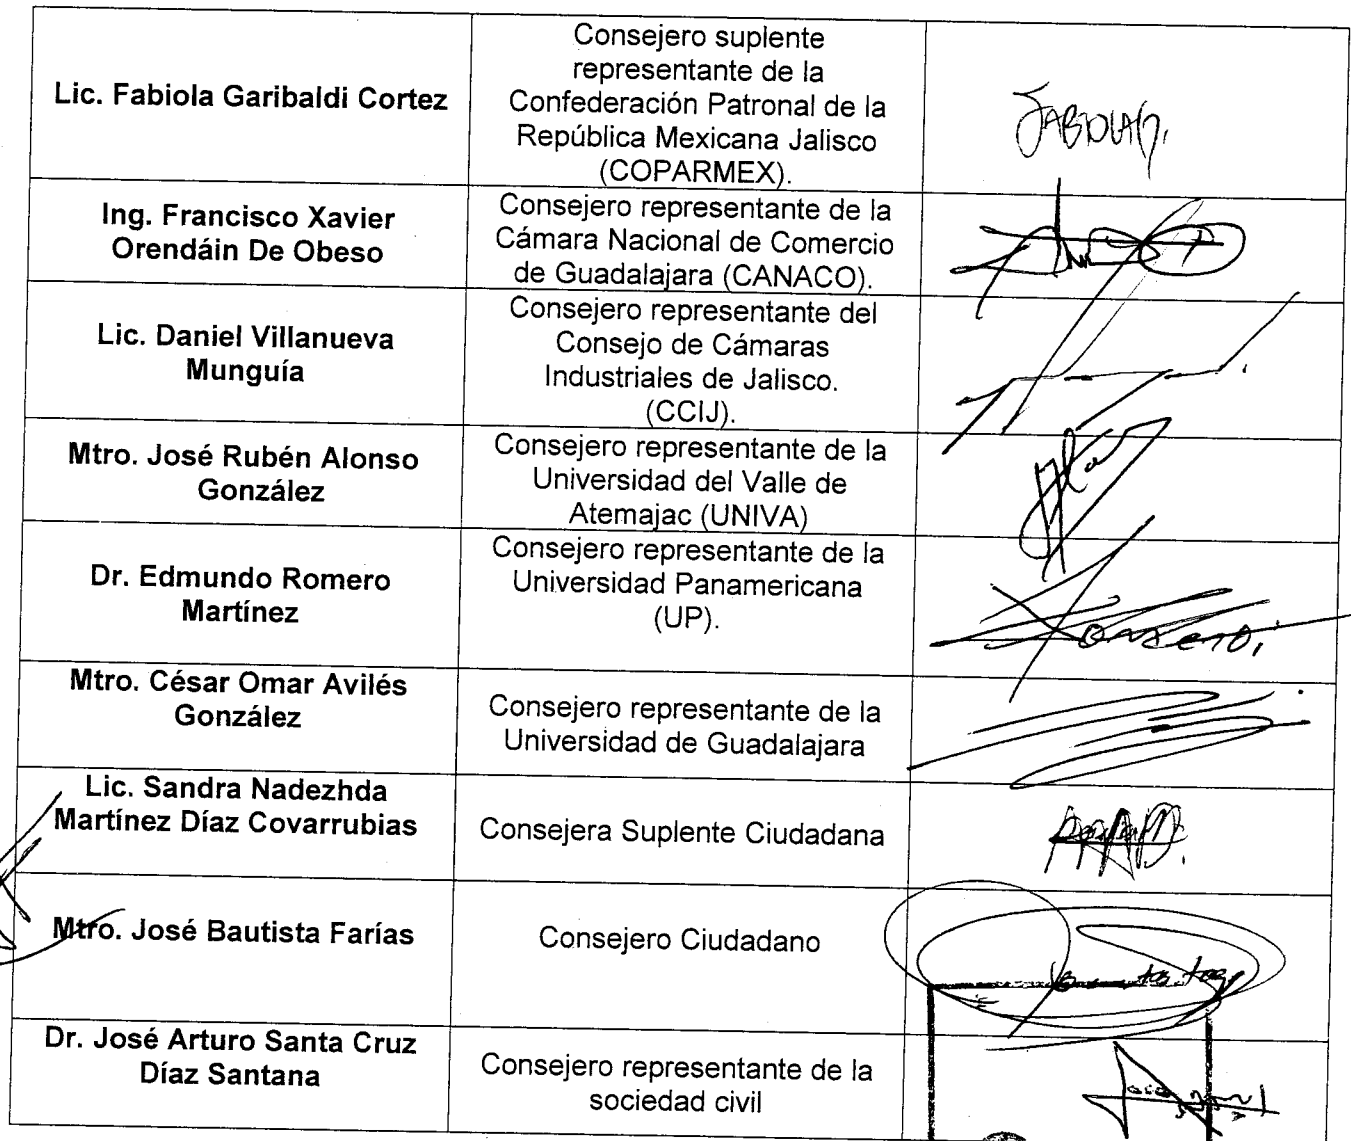 Lic. Fabiola Garibaldi Cortez
Consejero suplente
representante de la
Confederación Patronal de la
República Mexicana Jalisco
(COPARMEX).
FABIOLAG.
Ing. Francisco Xavier
Orendáin De Obeso
Consejero representante de la
Cámara Nacional de Comercio
de Guadalajara (CANACO).
Lic. Daniel Villanueva
Munguía
Consejero representante del
Consejo de Cámaras
Industriales de Jalisco.
(CCIJ).
Mtro. José Rubén Alonso
González
Consejero representante de la
Universidad del Valle de
Atemajac (UNIVA)
Dr. Edmundo Romero
Martínez
Consejero representante de la
Universidad Panamericana
(UP).
Mtro. César Omar Avilés
González
Consejero representante de la
Universidad de Guadalajara
Lic. Sandra Nadezhda
Martínez Díaz Covarrubias
Consejera Suplente Ciudadana
Mtro. José Bautista Farías
Consejero Ciudadano
Dr. José Arturo Santa Cruz
Díaz Santana
Consejero representante de la
sociedad civil